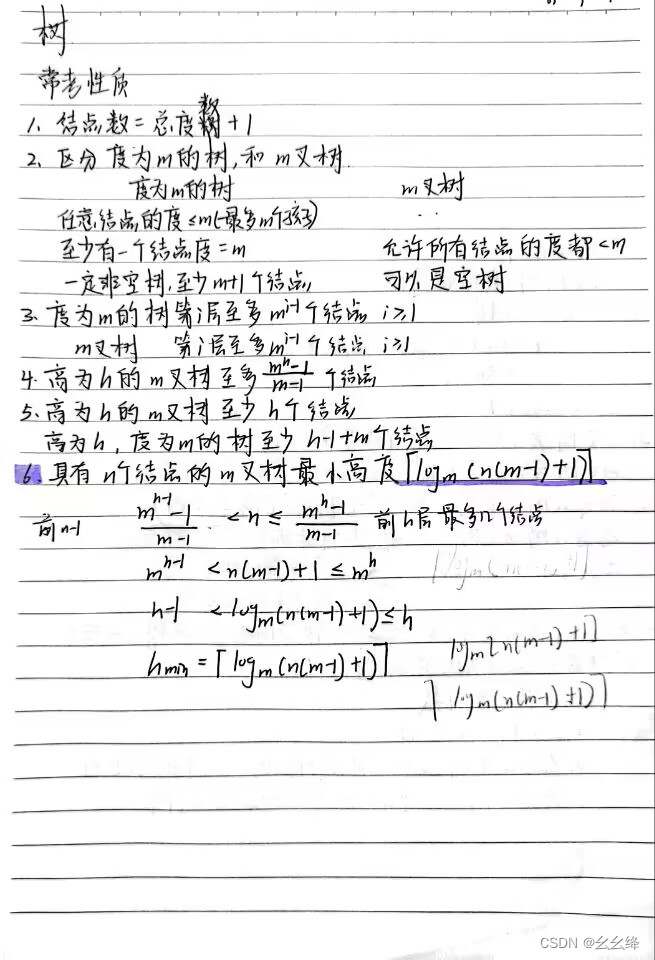 树
常考性质
1. 结点数=总度数+1
2. 区分 度为m的树, 和 m叉树.
度为m的树 m叉树
任意结点的度≤m(最多m个孩子) ..
至少有一个结点度=m 允许所有结点的度都<m
一定非空树,至少m+1个结点 可以是空树
3. 度为m的树第i层至多m^{i-1}个结点 i≥1
m叉树 第i层至多m^{i-1}个结点 i≥1
4. 高为h的m叉树至多 \frac{m^h-1}{m-1} 个结点
5. 高为h的m叉树至少h个结点
高为h, 度为m的树至少 h-1+m个结点
6. 具有n个结点的m叉树最小高度⌈log_m(n(m-1)+1)⌉
前n-1 \frac{m^{h-1}-1}{m-1} < n ≤ \frac{m^h-1}{m-1} 前h层最多几个结点
m^{h-1} < n(m-1)+1 ≤ m^h
h-1 < log_m(n(m-1)+1) ≤ h
h_{min} = ⌈log_m(n(m-1)+1)⌉
log_m[n(m-1)+1]
⌈log_m(n(m-1)+1)⌉
CSDN @幺幺绛